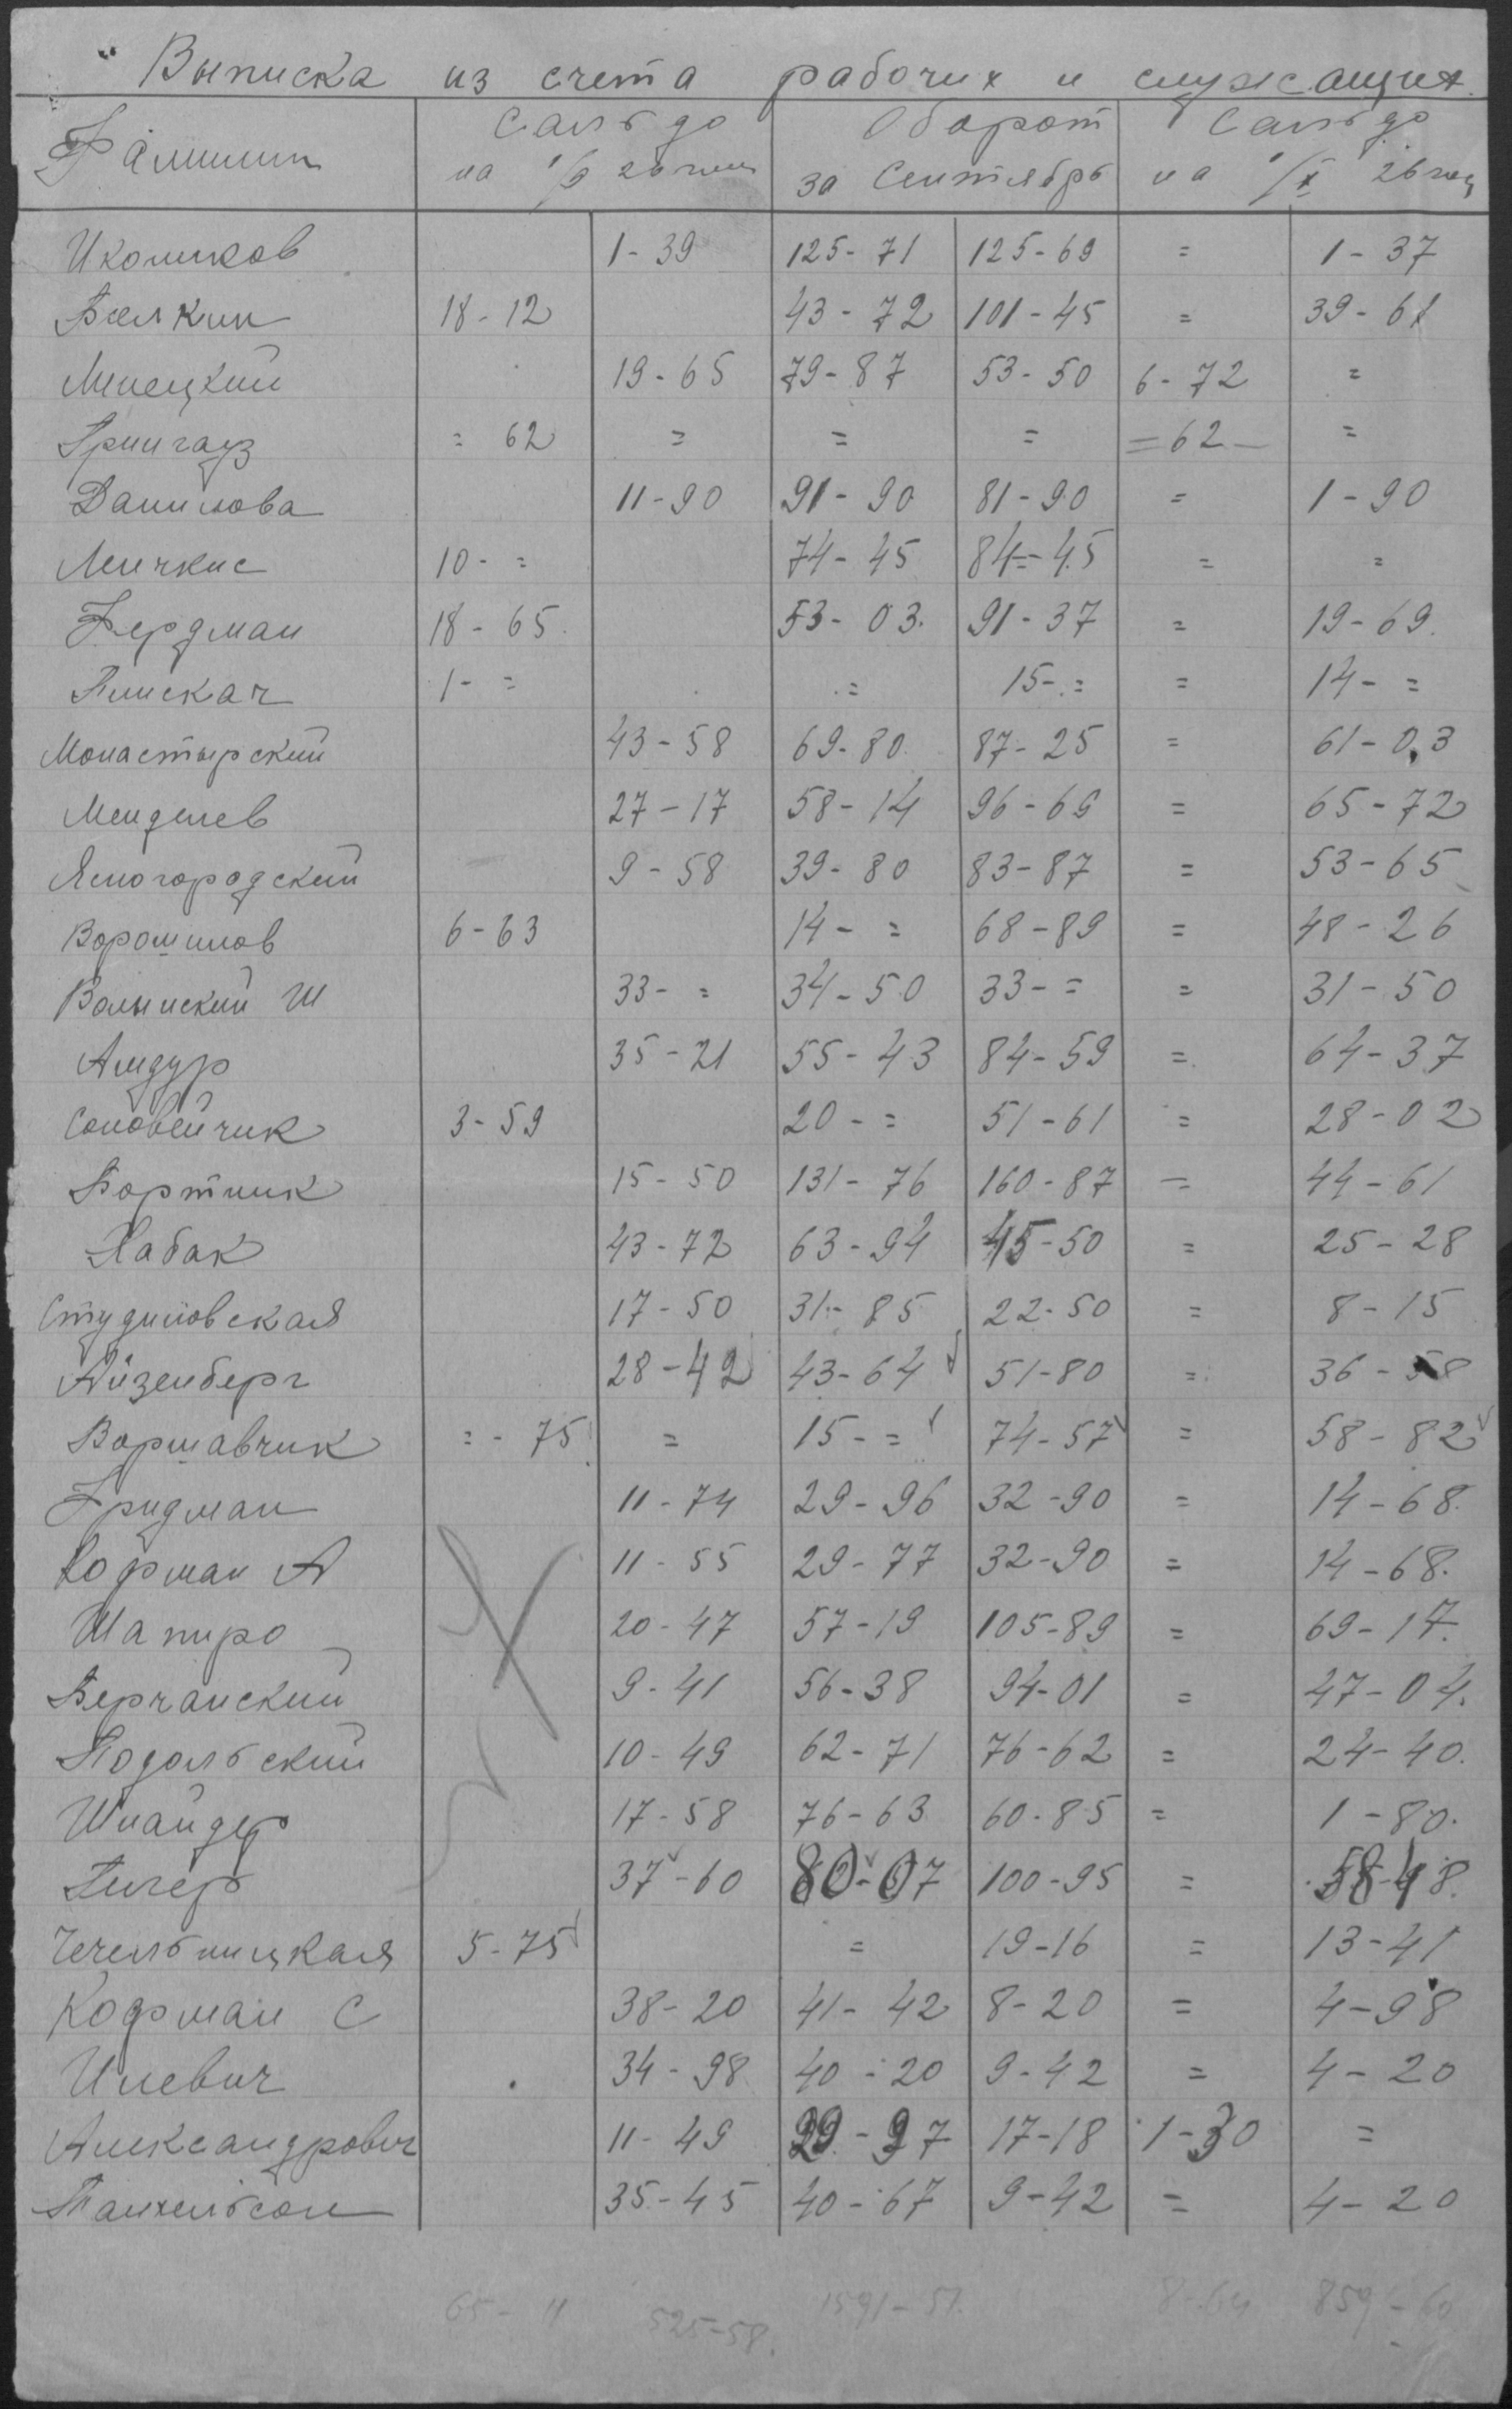 Выписка из счета рабочих и служащих.
Фамилии Сальдо на 1/IX 26 года Оборот за Сентябрь Сальдо на 1/X 26 год
Иколиков 1-39 125-71 125-69 = 1-37
Белкин 18-12 43-72 101-45 = 39-61
Липецкий 19-65 79-87 53-50 6-72 =
Грингауз = 62 = = = = 62 - =
Данилова 11-90 91-90 81-90 = 1-90
Мичкис 10- = 74-45 84-45 = =
Фердман 18-65 53-03 91-37 = 19-69
Плискач 1- = = 15- = = 14- =
Монастырский 43-58 69-80 87-25 = 61-03
Менделев 27-17 58-14 96-69 = 65-72
Ясногородский 9-58 39-80 83-87 = 53-65
Ворошилов 6-63 14- = 68-89 = 48-26
Волынский Ш 33- = 34-50 33- = = 31-50
Амдур 35-21 55-43 84-59 = 64-37
Соловейчик 3-59 20- = 51-61 = 28-02
Бортник 15-50 131-76 160-87 = 44-61
Хабак 43-72 63-94 45-50 = 25-28
Студиловская 17-50 31-85 22-50 = 8-15
Айзенберг 28-42 43-64 51-80 = 36-58
Варшавчик = - 75 = 15- = 74-57 = 58-82
Фридман 11-74 29-96 32-90 = 14-68
Кофман А 11-55 29-77 32-90 = 14-68
Шапиро 20-47 57-19 105-89 = 69-17
Берчанский 9-41 56-38 94-01 = 47-04
Подольский 10-49 62-71 76-62 = 24-40
Шнайдер 17-58 76-63 60-85 = 1-80
Гигер 37-60 80-07 100-95 = 58-48
Чечельницкая 5-75 = 19-16 = 13-41
Кофман С 38-20 41-42 8-20 = 4-98
Илевич 34-98 40-20 9-42 = 4-20
Александрович 11-49 29-97 17-18 1-30 =
Танхельсон 35-45 40-67 9-42 = 4-20
65-11 525-58 1591-51 8-64 859-60